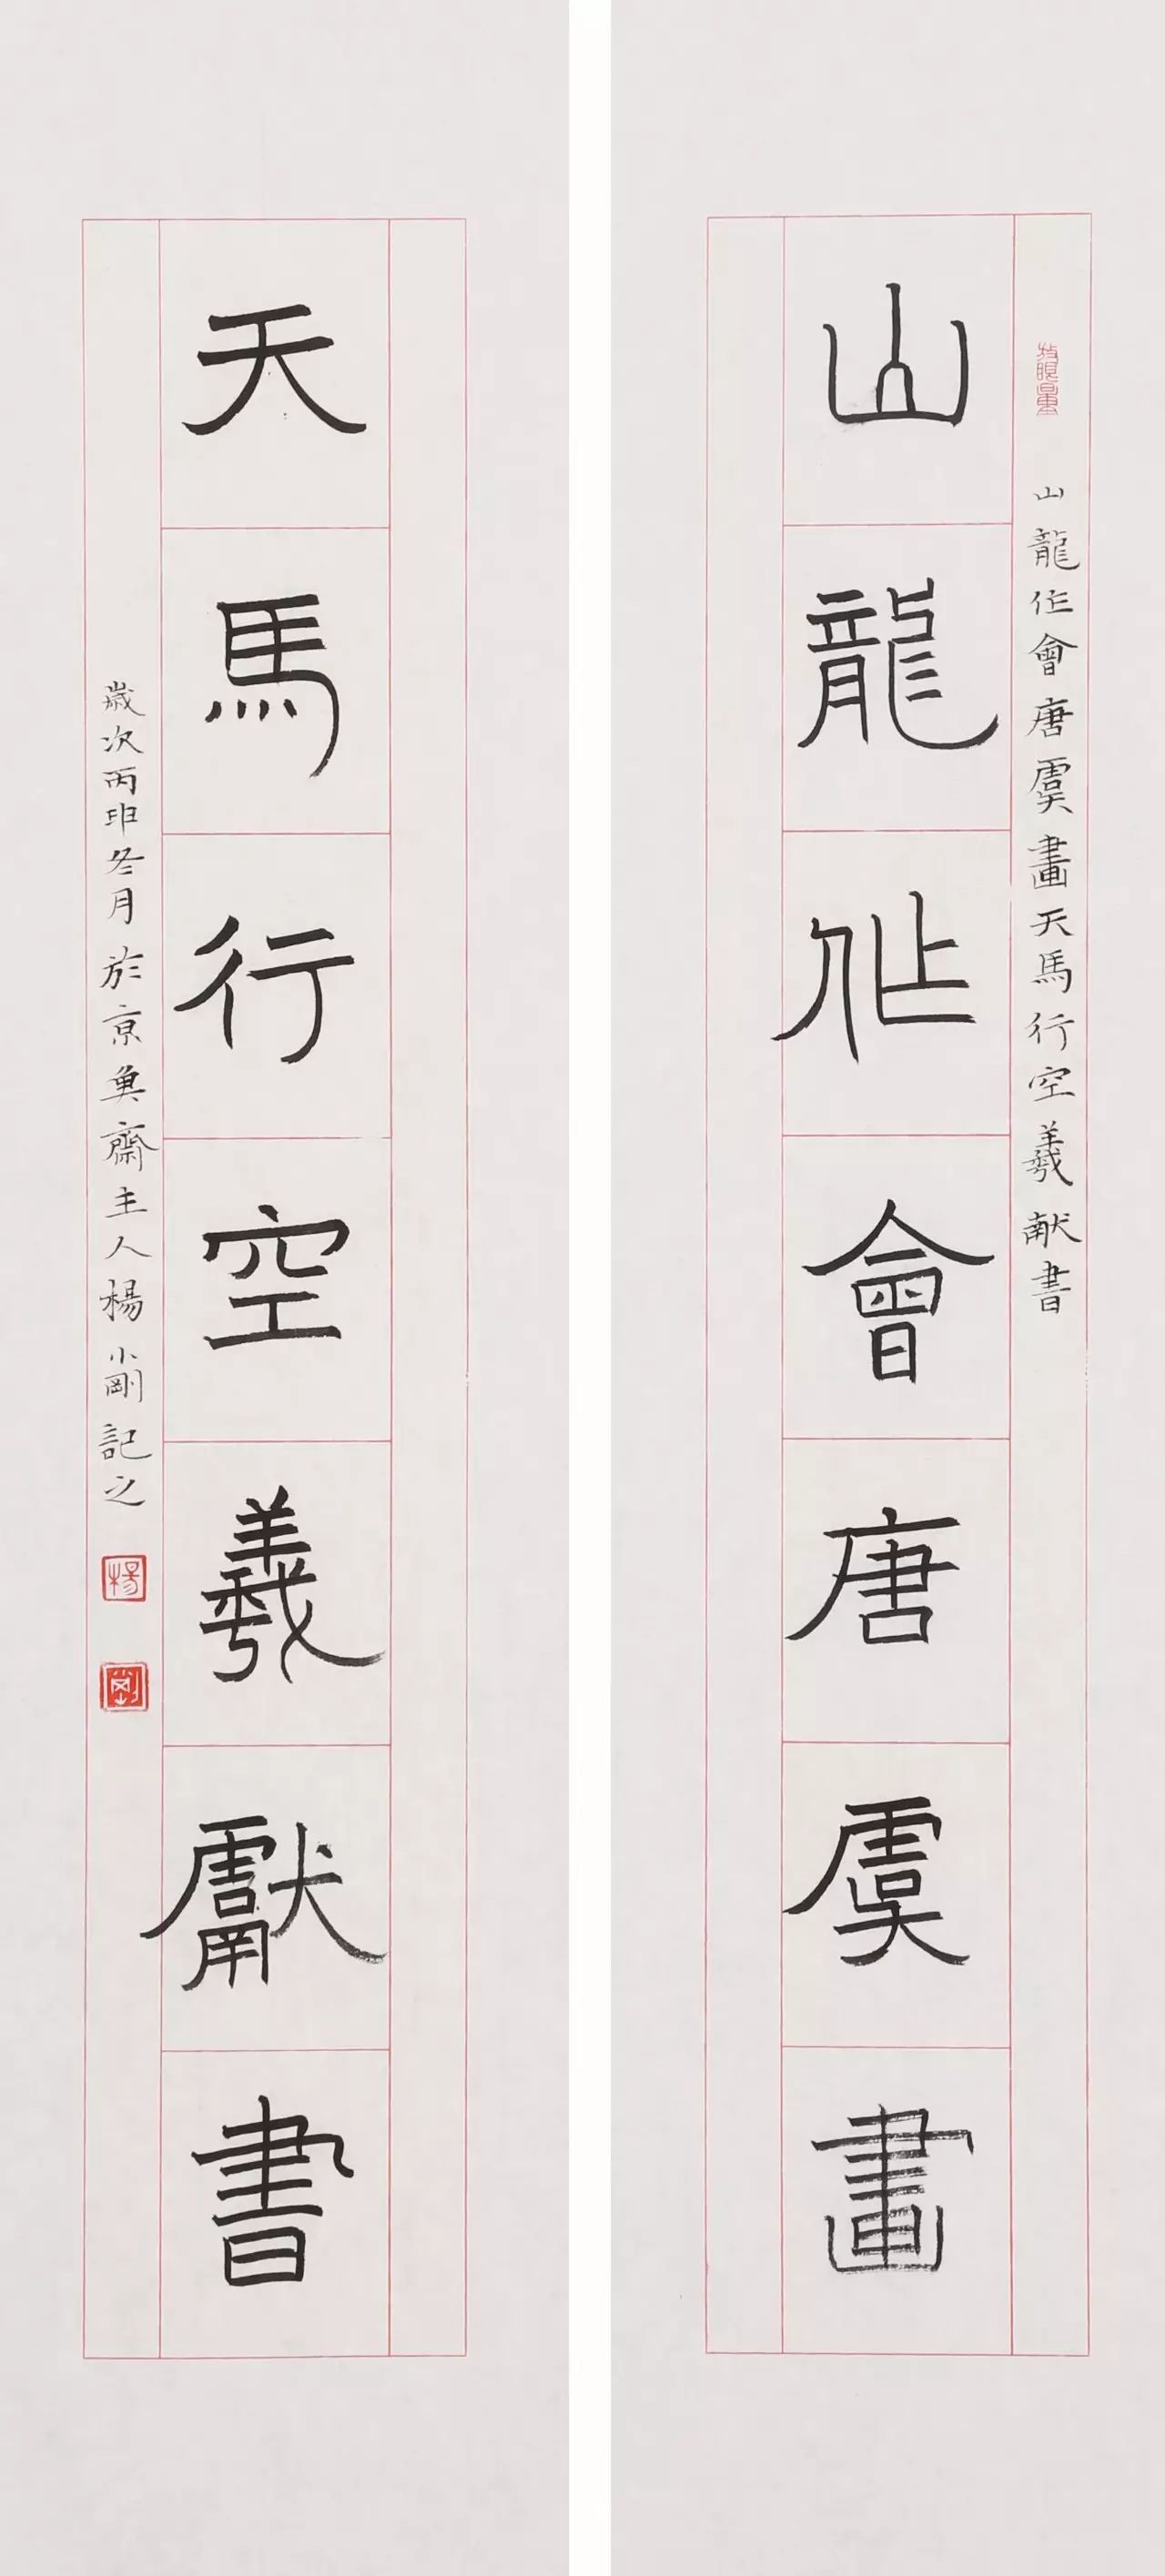 山龍作會唐虞畫
山龍作會唐虞畫天馬行空羲献書
天馬行空羲獻書
歲次丙申冬月於京奠齋主人楊小剛記之
楊